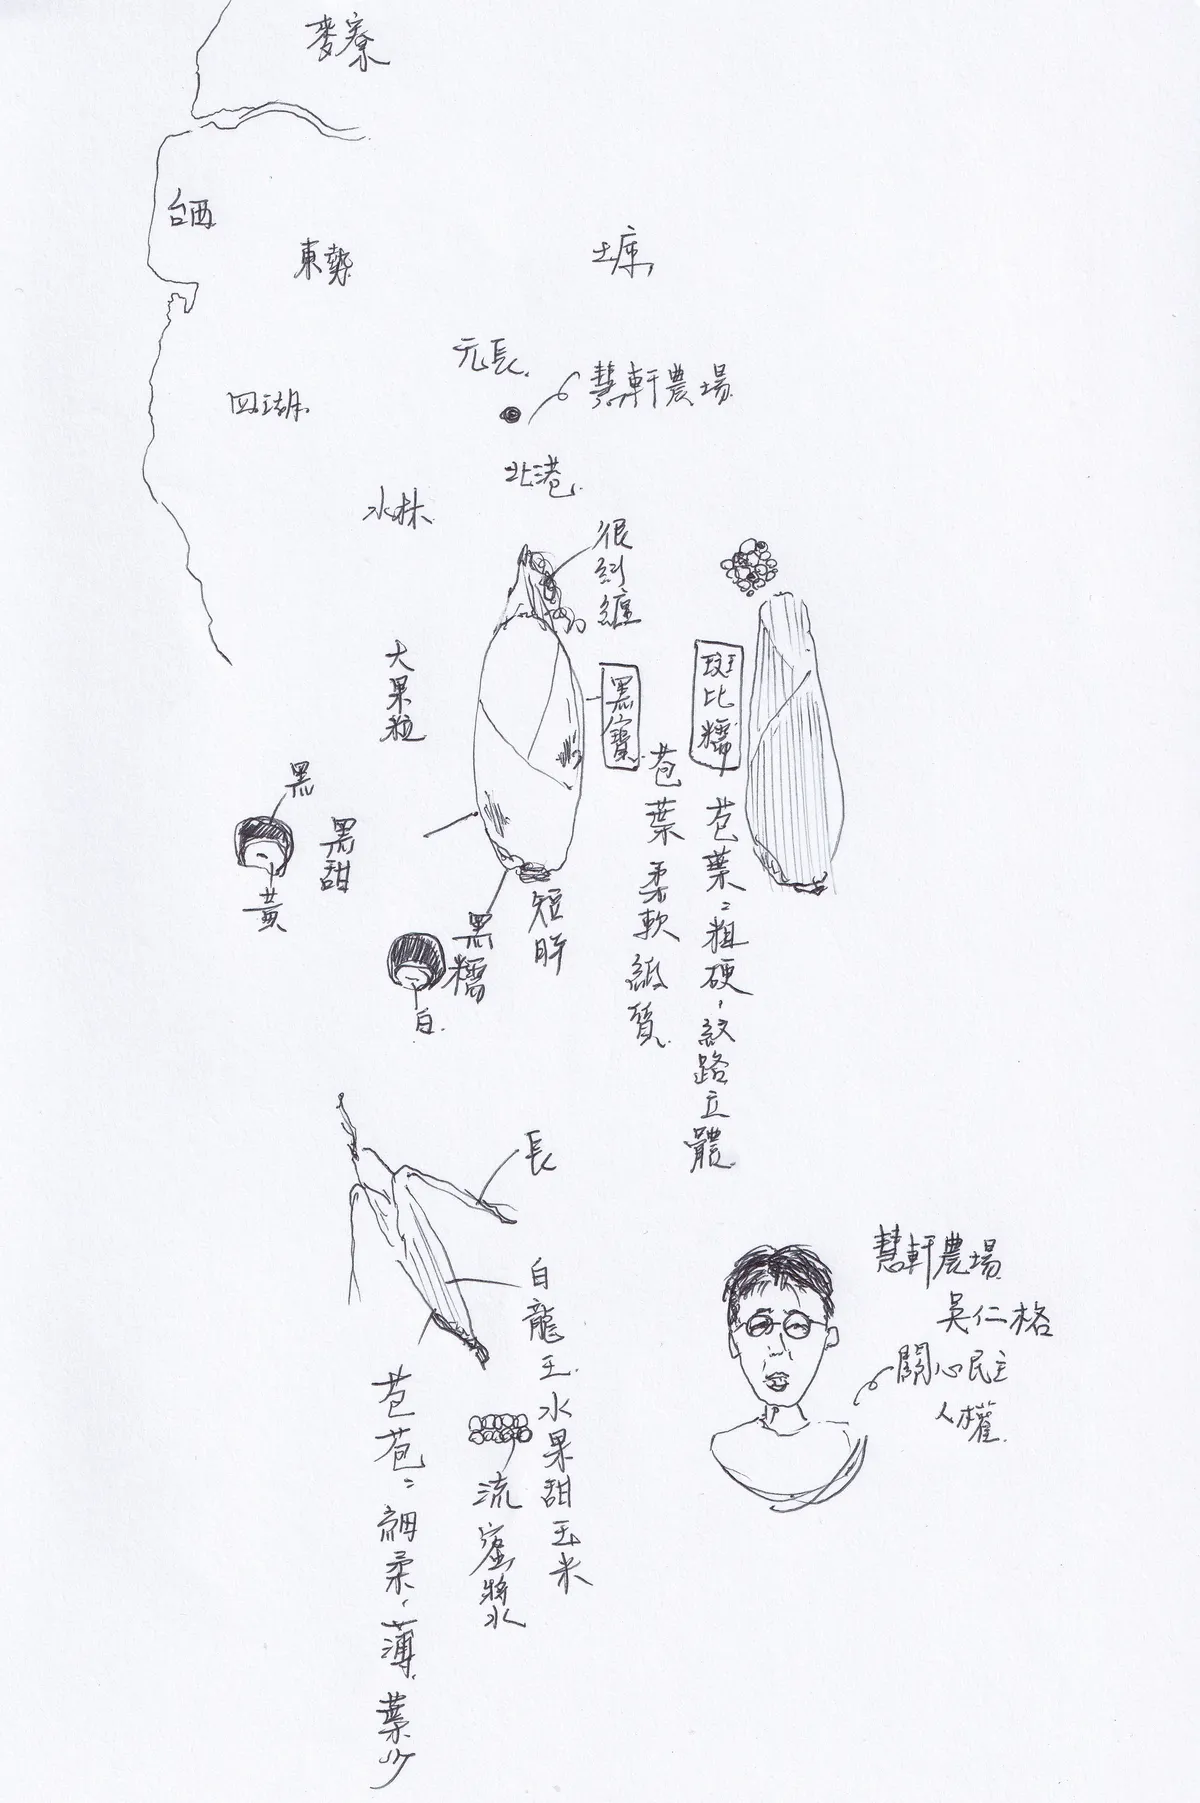 麥寮
台西
東勢
土庫
元長
慧軒農場
四湖
北港
水林
很糾纏
大果粒
黑寶
斑比糯
苞葉柔軟緞質
苞葉：粗硬，紋路立體
黑
黑甜
黃
短胖
黑糯
白
長
白龍王水果甜玉米
流蜜漿
苞苞：細柔，薄，葉少
慧軒農場
吳仁格
關心民主
人權